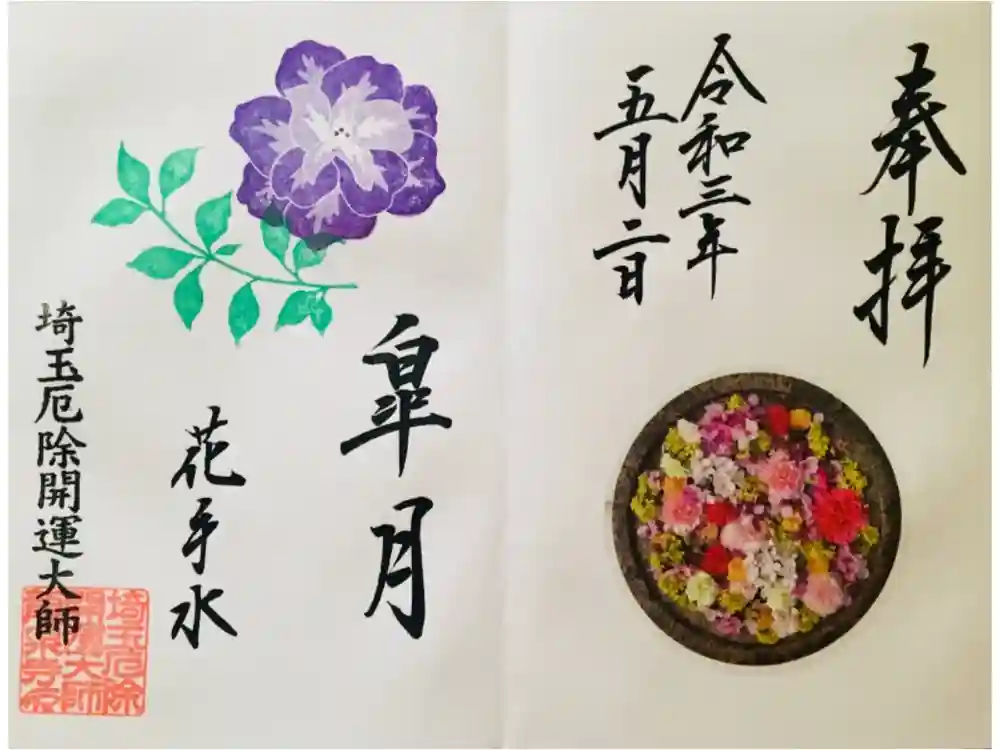 奉拝
令和三年
五月二日
皐月
花手水
埼玉厄除開運大師
埼玉厄除
開運大師